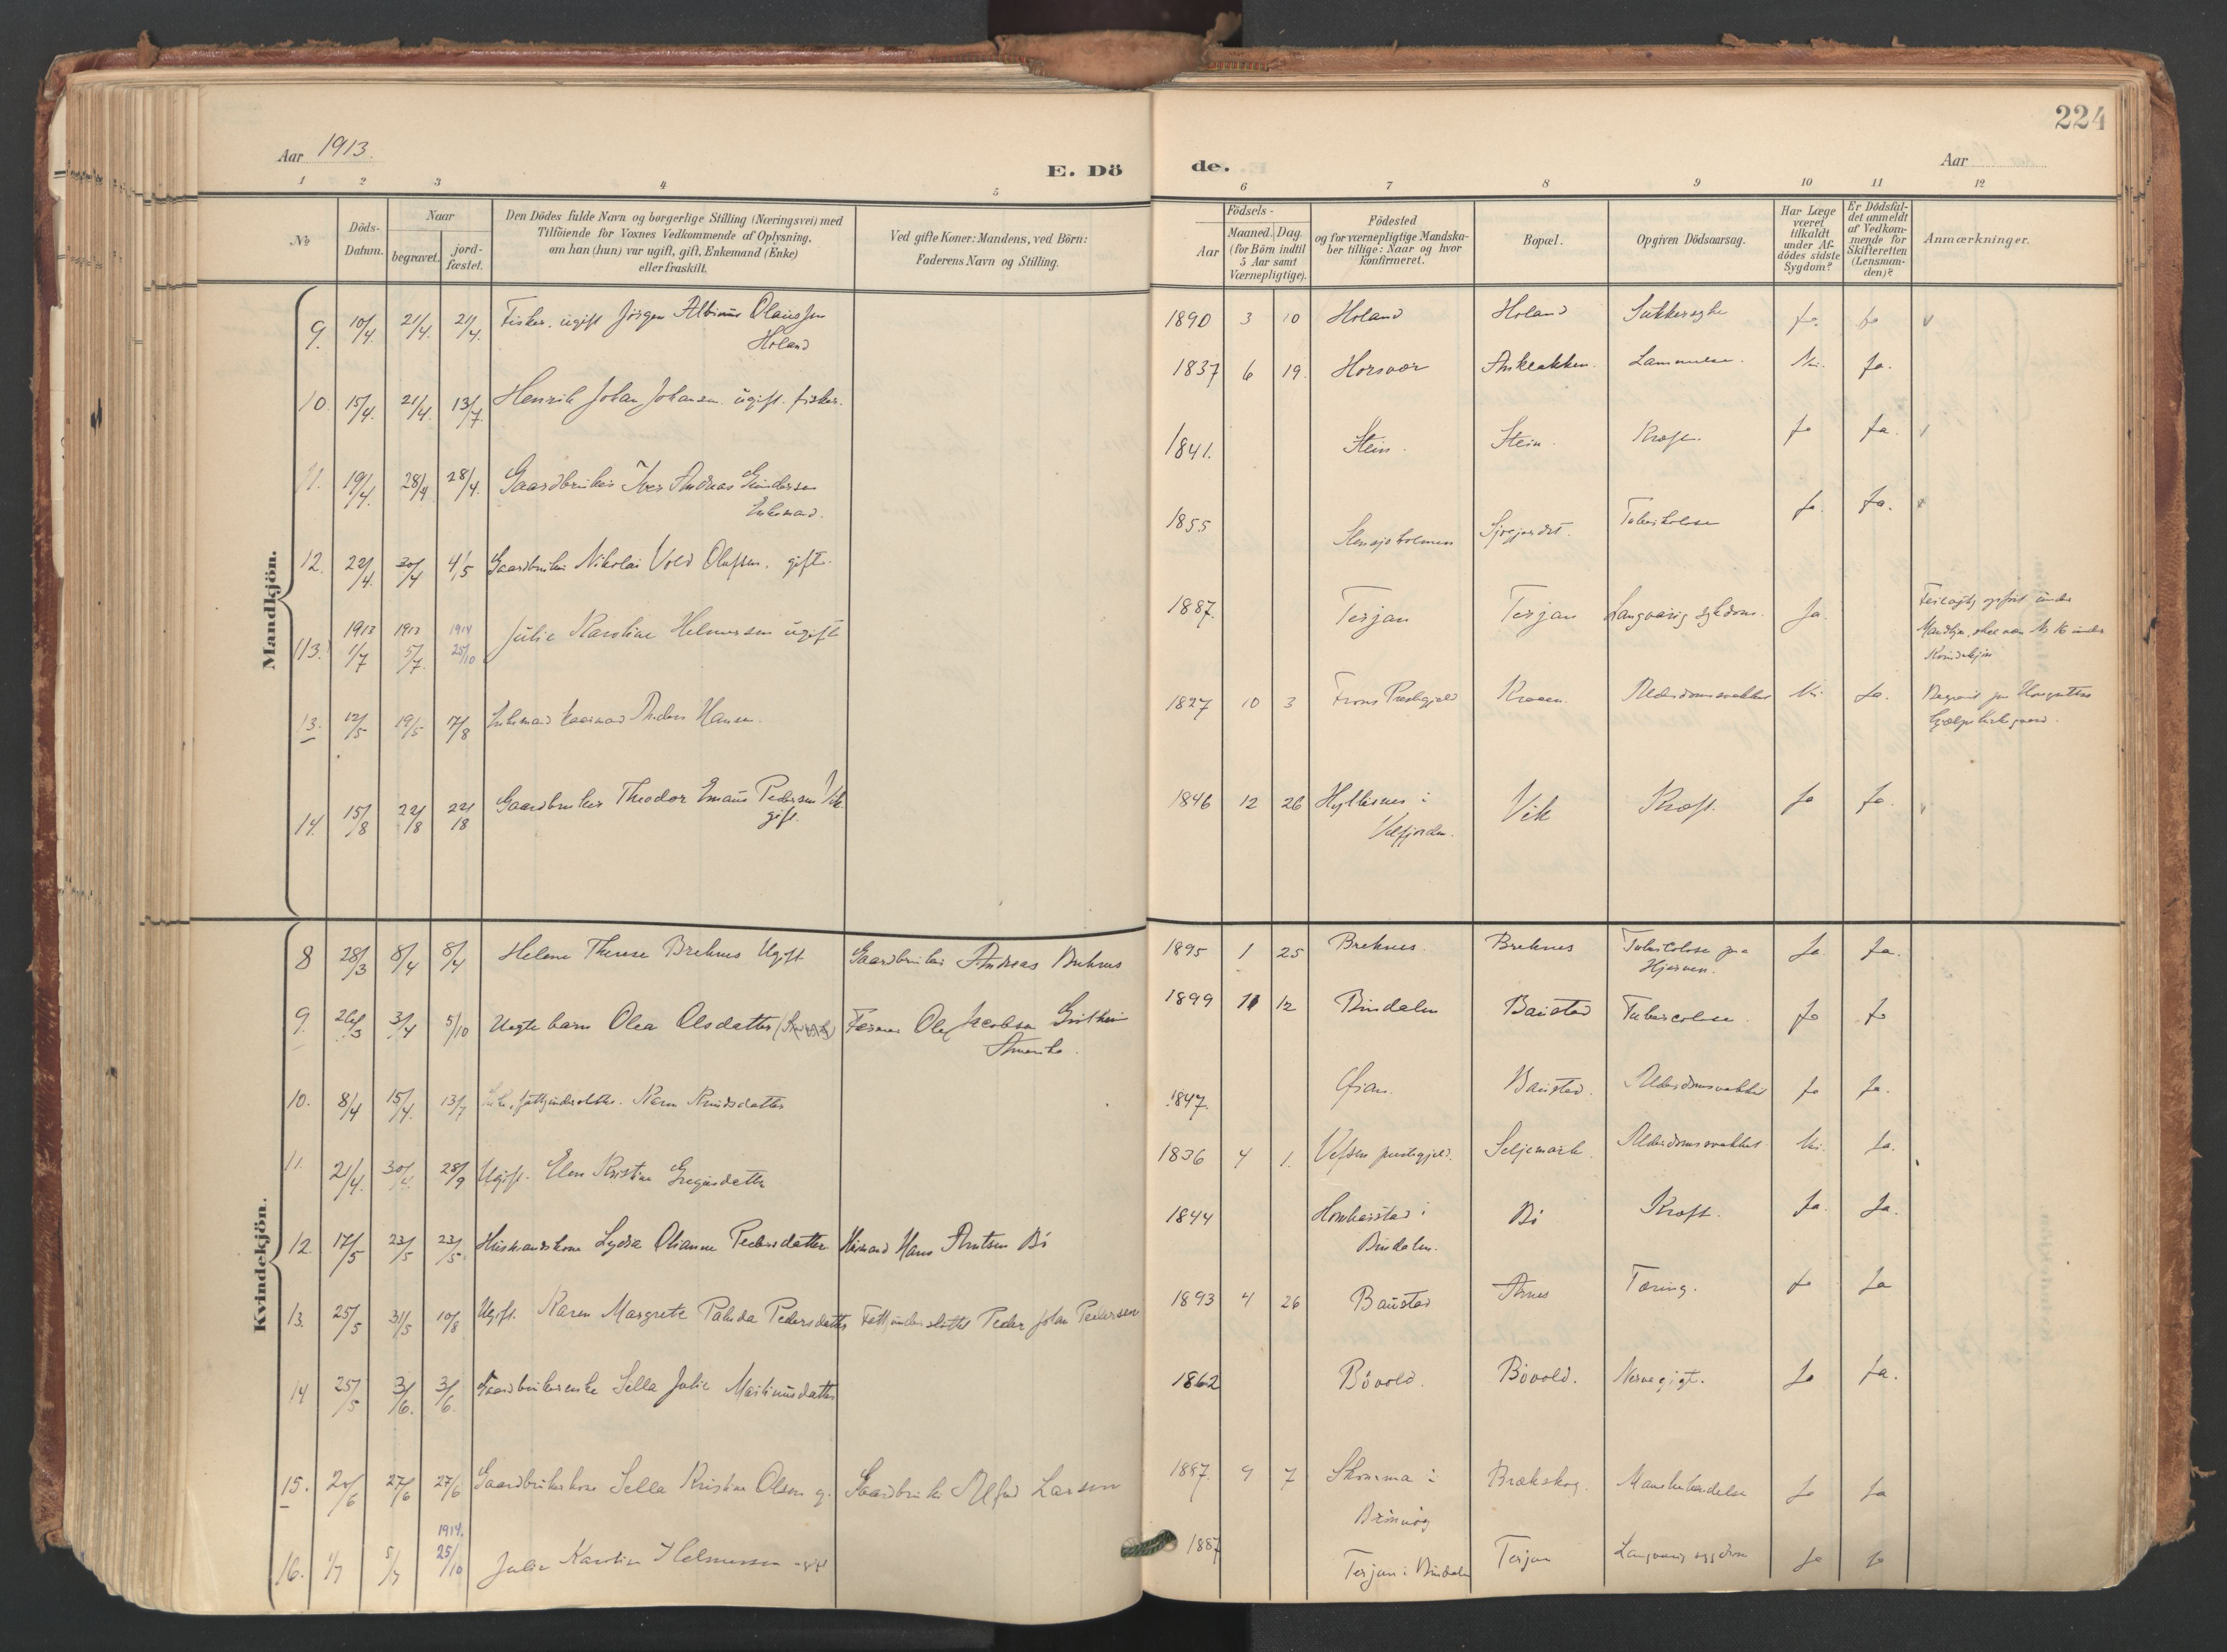 224
Aar 1913.
E. Dö de.
Aar
1 2 3 4 5 6 7 8 9 10 11 12
№
Döds-Datum.
Naar
begravet.
jord-fæstet.
Den Dödes fulde Navn og borgerlige Stilling (Næringsvei) med
Tilföiende for Voxnes Vedkommende af Oplysning,
om han (hun) var ugift, gift, Enkemand (Enke)
eller fraskilt.
Ved gifte Koner: Mandens, ved Börn:
Faderens Navn og Stilling.
Födsels-
Aar
Maaned. Dag.
(for Börn indtil
5 Aar samt
Værnepligtige).
Födested
og for værnepligtige Mandska-
ber tillige: Naar og hvor
konfirmeret.
Bopæl.
Opgiven Dödsaarsag.
Har Læge
været
tilkaldt
under Af-
dödes sidste
Sygdom?
Er Dödsfal-
det anmeldt
af Vedkom-
mende for
Skifteretten
(Lensman-
den)?
Anmærkninger.
Mandkjön.
9. 10/4. 21/4. 21/4. Fisker, ugift Jörgen Albinus Olaussen
Holand
1890 3 10 Holand Holand Sukkersyke Ja. Ja
10. 15/4. 21/4. 13/7. Henrik Johan Johansen ugift. fisker.
1837 6 19. Horsvær Lammelse. Nei. Ja.
11. 19/4. 28/4 28/4. Gaardbruker Iver Andreas
Enkemand.
1841. Stein. Stein. Kræft. Ja Ja.
12. 22/4. 30/4 4/5 Gaardbruker Nikolai Vold Olufsen. gift.
1855 Tuberkulose Ja. Ja.
13. 1913 1/7 1913 5/7. 1914 25/10 Julie Karoline Helmersen ugift
1887. Terjan Terjan Langvarig sykdom. Ja.
Feilagtig opført under
Mandkjøn, skal være № 16 under
Kvindekjøn
13. 12/5 19/5 17/8 Enkemand Anders Hansen.
1827 10 3 Alderdomssvakhet Nei Ja.
14. 15/8 22/8 22/8 Gaardbruker Theodor Emaus Pedersen Vik
gift.
1846 12 26 Hyllesnes i
Velfjorden.
Vik Kræft. Ja Ja.
Kvindekjön.
8 28/3 8/4 8/4 Helene Therese Breknes Ugift Gaardbruker Andreas Breknes
1895 1 25 Breknes. Breknes Tuberkolose paa
Hjernen.
Ja. Ja.
9. 26/3 3/4 5/10 Uegte barn Olea Olsdatter Farmer Ole Jacobsen
Amerika.
1899 11 12 Bindalen Baustad Tubercolose. Ja Ja
10. 8/4 15/4. 13/7 Karen
1847. Baustad. Alderdomssvakhet Ja Ja.
11. 21/4. 30/4. 28/9 Ugift. Elen Kristine Gregusdatter
1836 4 1. Vefsen prestegjeld. Seljemark. Alderdomssvakhet. Nei. Ja.
12. 17/5 23/5 23/5. Husmandskone Lydia Olianne Pedersdatter Husmand Hans Arntsen Bö
1844 Bindalen. Bö Kræft. Ja. Ja.
13. 25/5 31/5 10/8 Ugift. Karen Margrete Palida Pedersdatter Fattigunderstøttet Peder Johan Pedersen
1893 4 26 Baustad Aarnes Tæring. Ja Ja
14 25/5 3/6. 3/6. Gaardbrukerenke Sella Julie Martinusdatter
1862 Bövold. Bövold. Nervegigt. Ja Ja.
15. 20/6 27/6 27/6 Gaardbrukerkone Sella Kristine Olsen g. Gaardbruker Alfred Larsen
1887. 9 7 Skomma i
Brönnöy
Brækskog. Ja Ja
16. 1/7 5/7 1914. 25/10 Julie Karoline Helmersen ugift
1887 Terjan i Bindalen Terjan Langvarig sygdom Ja Ja